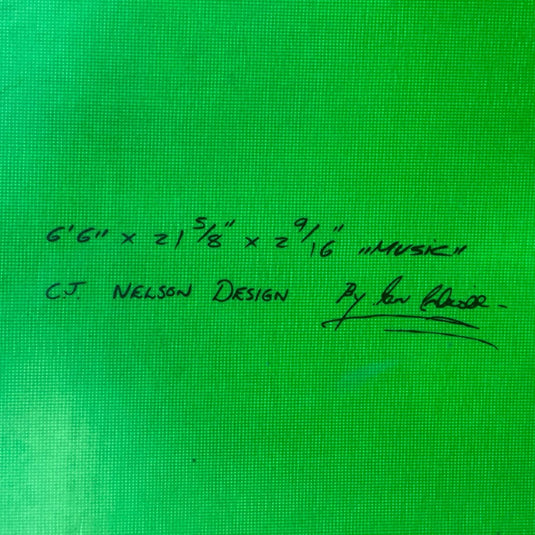 6'6" x 21 5/8" x 2 9/16" "MUSIC"
C.J. NELSON DESIGN By Ian